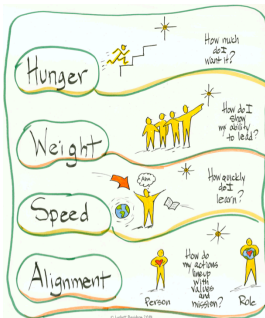 Hunger
How much
do I
want it?
Weight
How do I
show
my ability
to lead?
Speed
Aha
How quickly
do I
learn?
Alignment
How do
my actions
line up
with
values
and
mission?
Person
Role